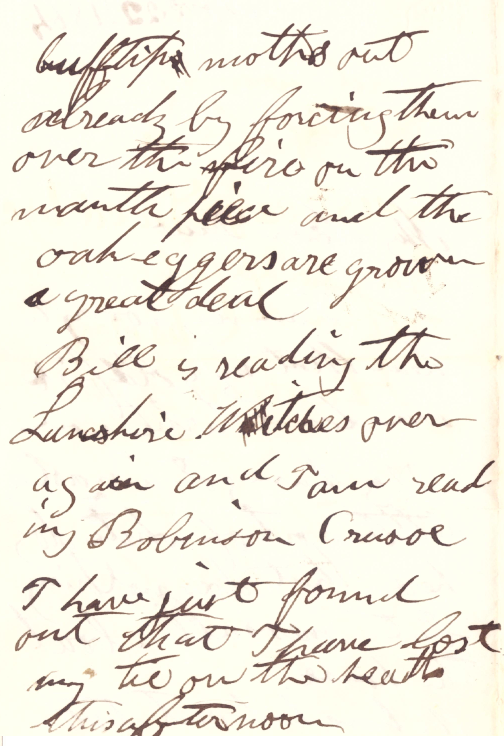 bufftips moths out
already by forcing them
over the fire on the
mantle piece and the
oak-eggers are grown
a great deal
Bill is reading the
Lancshire Witches over
again and I am read
ing Robinson Crusoe
I have just found
out that I have lost
my tie on the heath
this afternoon